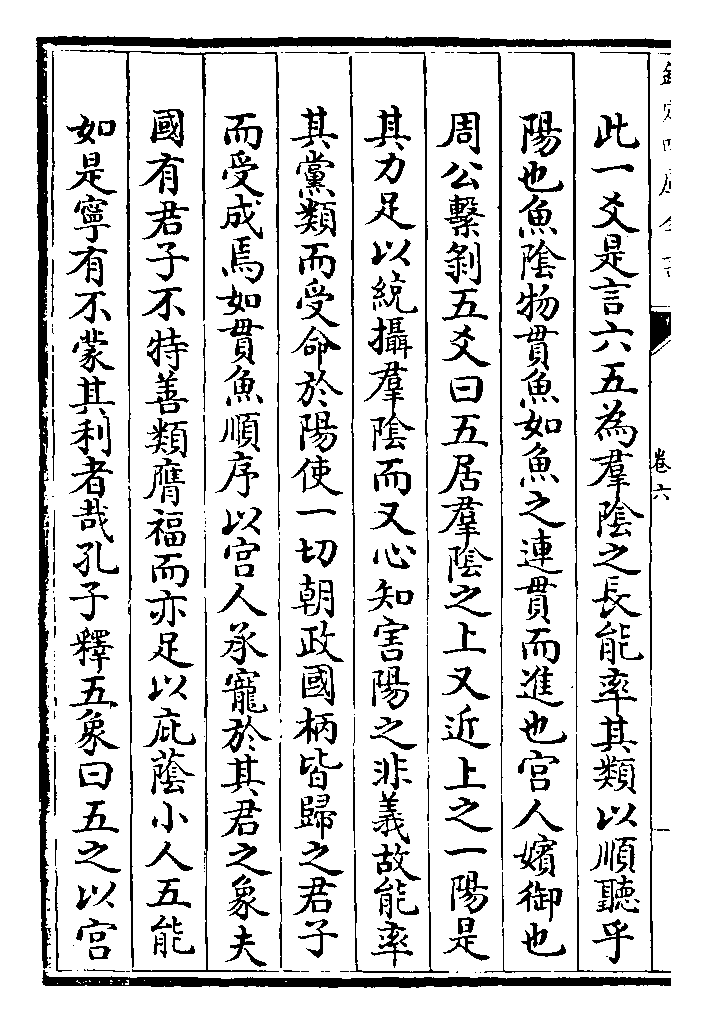 欽定四庫全書
卷六
此一爻是言六五為羣陰之長能率其類以順聽乎
陽也魚陰物貫魚如魚之連貫而進也宮人嬪御也
周公繫剝五爻曰五居羣陰之上又近上之一陽是
其力足以統攝羣陰而又心知害陽之非義故能率
其黨類而受命於陽使一切朝政國柄皆歸之君子
而受成焉如貫魚順序以宮人承寵於其君之象夫
國有君子不特善類膺福而亦足以庇蔭小人五能
如是寧有不蒙其利者哉孔子釋五象曰五之以宮